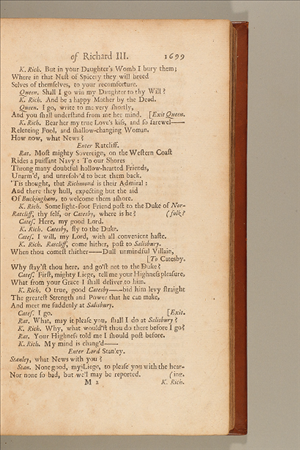 of Richard III. 1699
K. Rich. But in your Daughter's Womb I bury them;
Where in that Nest of Spicery they will breed
Selves of themselves, to your recomforture.
Queen. Shall I go win my Daughter to thy Will?
K. Rich. And be a happy Mother by the Deed.
Queen. I go, write to me very shortly,
And you shall understand from me her mind. [Exit Queen.
K. Rich. Bear her my true Love's kiss, and so farewel——
Relenting Fool, and shallow-changing Woman.
How now, what News?
Enter Ratcliff.
Rat. Most mighty Sovereign, on the Western Coast
Rides a puissant Navy: To our Shores
Throng many doubtful hollow-hearted Friends,
Unarm'd, and unresolv'd to beat them back.
'Tis thought, that Richmond is their Admiral:
And there they hull, expecting but the aid
Of Buckingham, to welcome them ashore.
K. Rich. Some light-foot Friend post to the Duke of Nor-
Ratcliff, thy self, or Catesby, where is he? (folk?
Catef. Here, my good Lord.
K. Rich. Catesby, fly to the Duke.
Catef. I will, my Lord, with all convenient haste.
K. Rich. Ratcliff, come hither, post to Salisbury.
When thou comest thither——Dull unmindful Villain,
[To Catesby.
Why stay'st thou here, and go'st not to the Duke?
Catef. First, mighty Liege, tell me your Highness pleasure,
What from your Grace I shall deliver to him.
K. Rich. O true, good Catesby——bid him levy straight
The greatest Strength and Power that he can make,
And meet me suddenly at Salisbury.
Catef. I go. [Exit.
Rat. What, may it please you, shall I do at Salisbury?
K. Rich. Why, what would'st thou do there before I go?
Rat. Your Highness told me I should post before.
K. Rich. My mind is chang'd——
Enter Lord Stanley.
Stanley, what News with you?
Stan. None good, my Liege, to please you with the hear-
Nor none so bad, but we'l may be reported. (ing.
M 2 K. Rich.